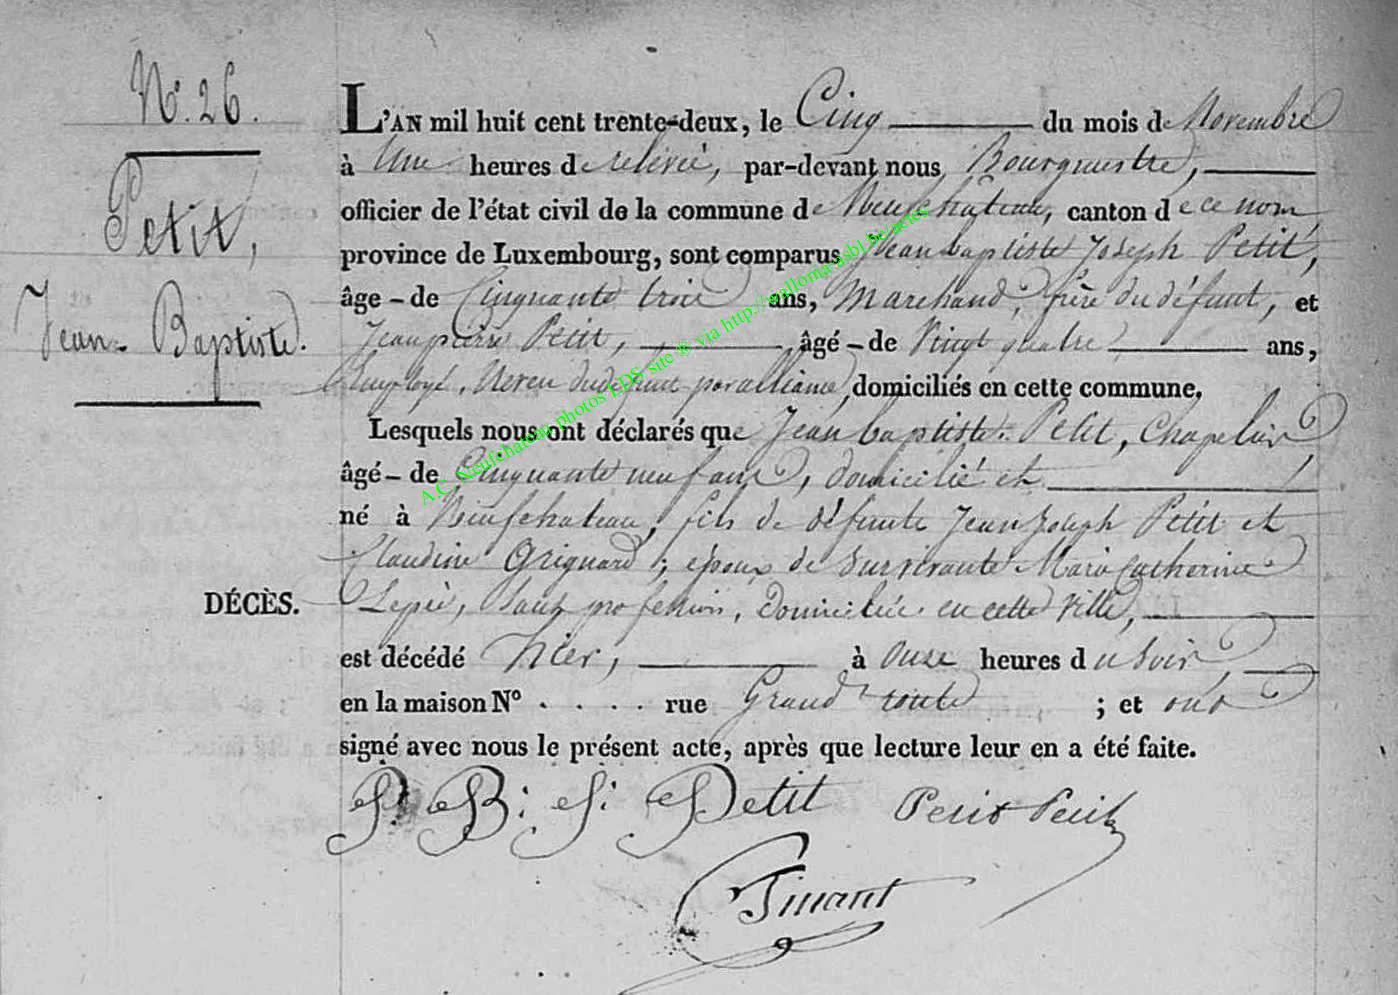 N.° 26.
Petit,
Jean Baptiste.
DÉCÈS.
L'AN mil huit cent trente-deux, le Cinq du mois de Novembre
à Une heures de relévée, par-devant nous Bourgmestre,
officier de l'état civil de la commune de Neufchateau, canton de ce nom
province de Luxembourg, sont comparus Jean baptiste Joseph Petit,
âge - de Cinquante trois ans, Marchand, frère du défunt, et
Jean pierre Petit, âgé - de Vingt quatre ans,
Employé, Neveu du défunt par alliance, domiciliés en cette commune,
Lesquels nous ont déclarés que Jean baptiste Petit, Chapelier
âgé - de Cinquante neuf ans, domicilié et
né à Neufchateau, fils de défunts Jean Joseph Petit et
Claudine Grignard ; epoux de survivante Marie Catherine
Lepie, sans profession, domiciliée en cette Ville,
est décédé hier, à Onze heures du Soir
en la maison N° . . . . rue Grand route ; et ont
signé avec nous le présent acte, après que lecture leur en a été faite.
J. B: J: Petit Petit Petit
Tinant
A.C. Neufchateau photos LDS site ® via http://walloma-asbl.be/actes